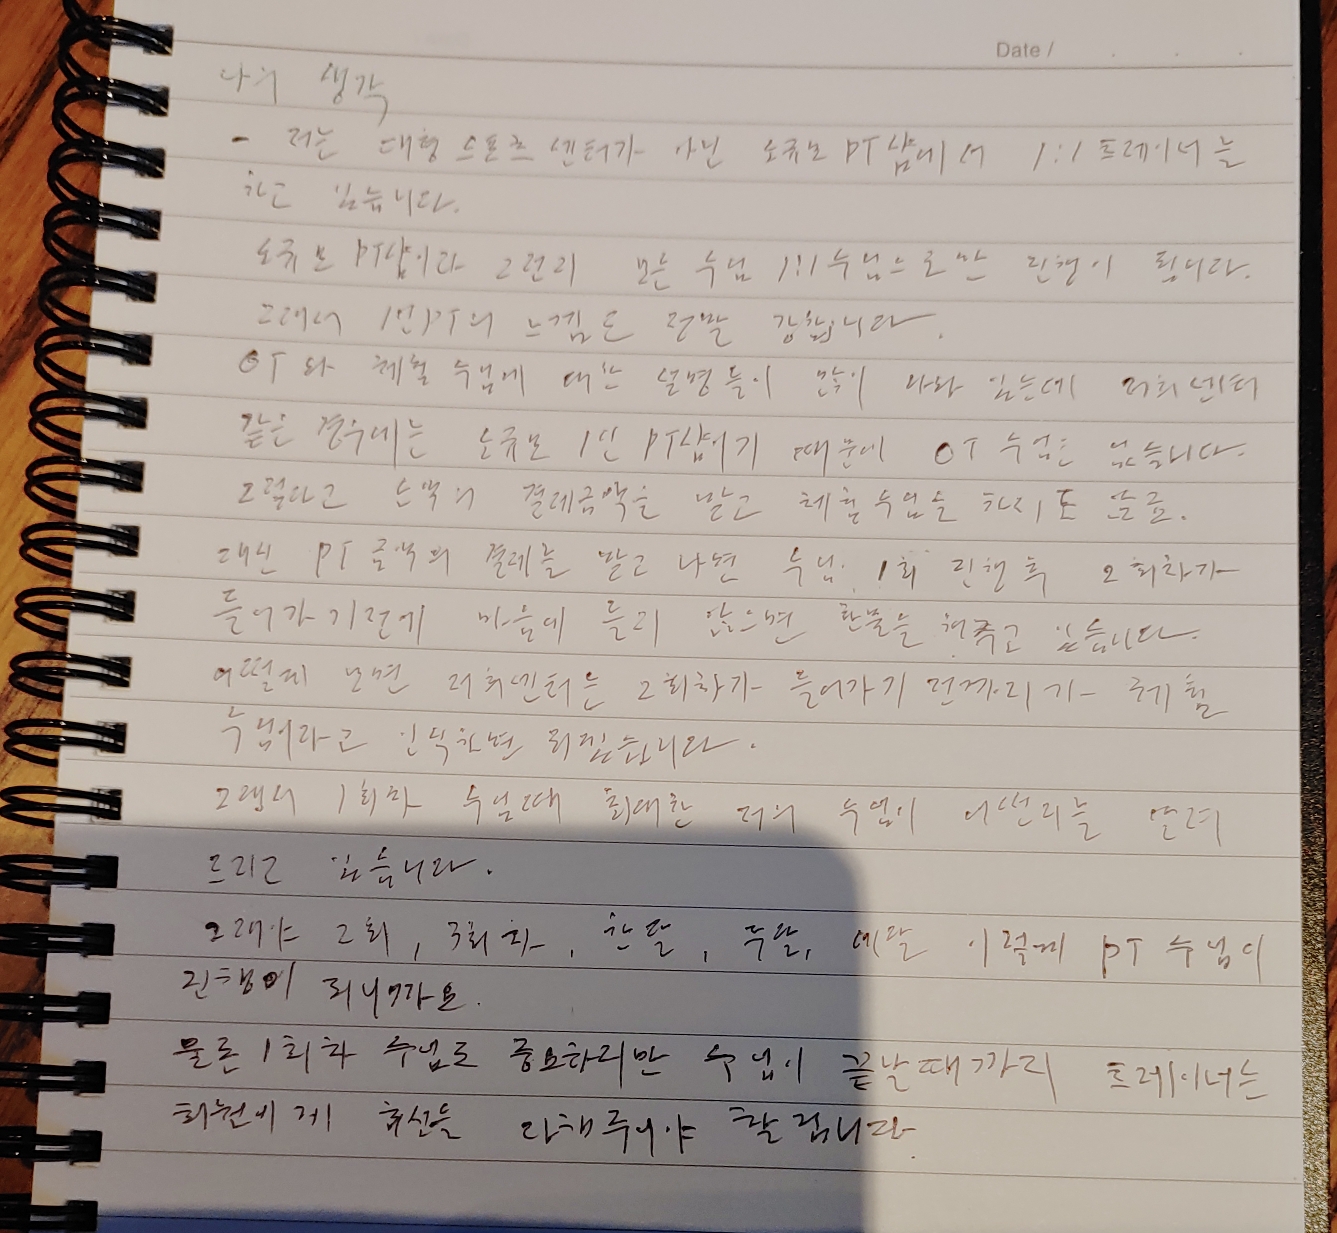 Date / . . .
나의 생각
- 저는 대형 스포츠 센터가 아닌 소규모 PT샵에서 1:1 트레이너를
하고 있습니다.
소규모 PT샵이라 그런지 모든 수업 1:1 수업으로만 진행이 됩니다.
그래서 1인PT의 느낌도 정말 강합니다.
OT와 체험 수업에 대한 설명들이 많이 나와 있는데 저희센터
같은 경우에는 소규모 1인 PT샵이기 때문에 OT 수업은 없습니다.
그렇다고 소액의 결제금액을 받고 체험수업을 하지도 않죠.
대신 PT 금액의 결제를 받고 나면 수업 1회 진행 후 2회차가
들어가기전에 마음에 들지 않으면 환불을 해주고 있습니다.
어떻게 보면 저희센터는 2회차가 들어가기 전까지가 체험
수업이라고 인식하면 되겠습니다.
그래서 1회차 수업때 최대한 저의 수업이 어떤지를 알려
드리고 있습니다.
그래야 2회, 3회차, 한달, 두달, 세달 이렇게 PT 수업이
진행이 되니까요.
물론 1회차 수업도 중요하지만 수업이 끝날때까지 트레이너는
회원에게 최선을 다해주어야 할 겁니다.